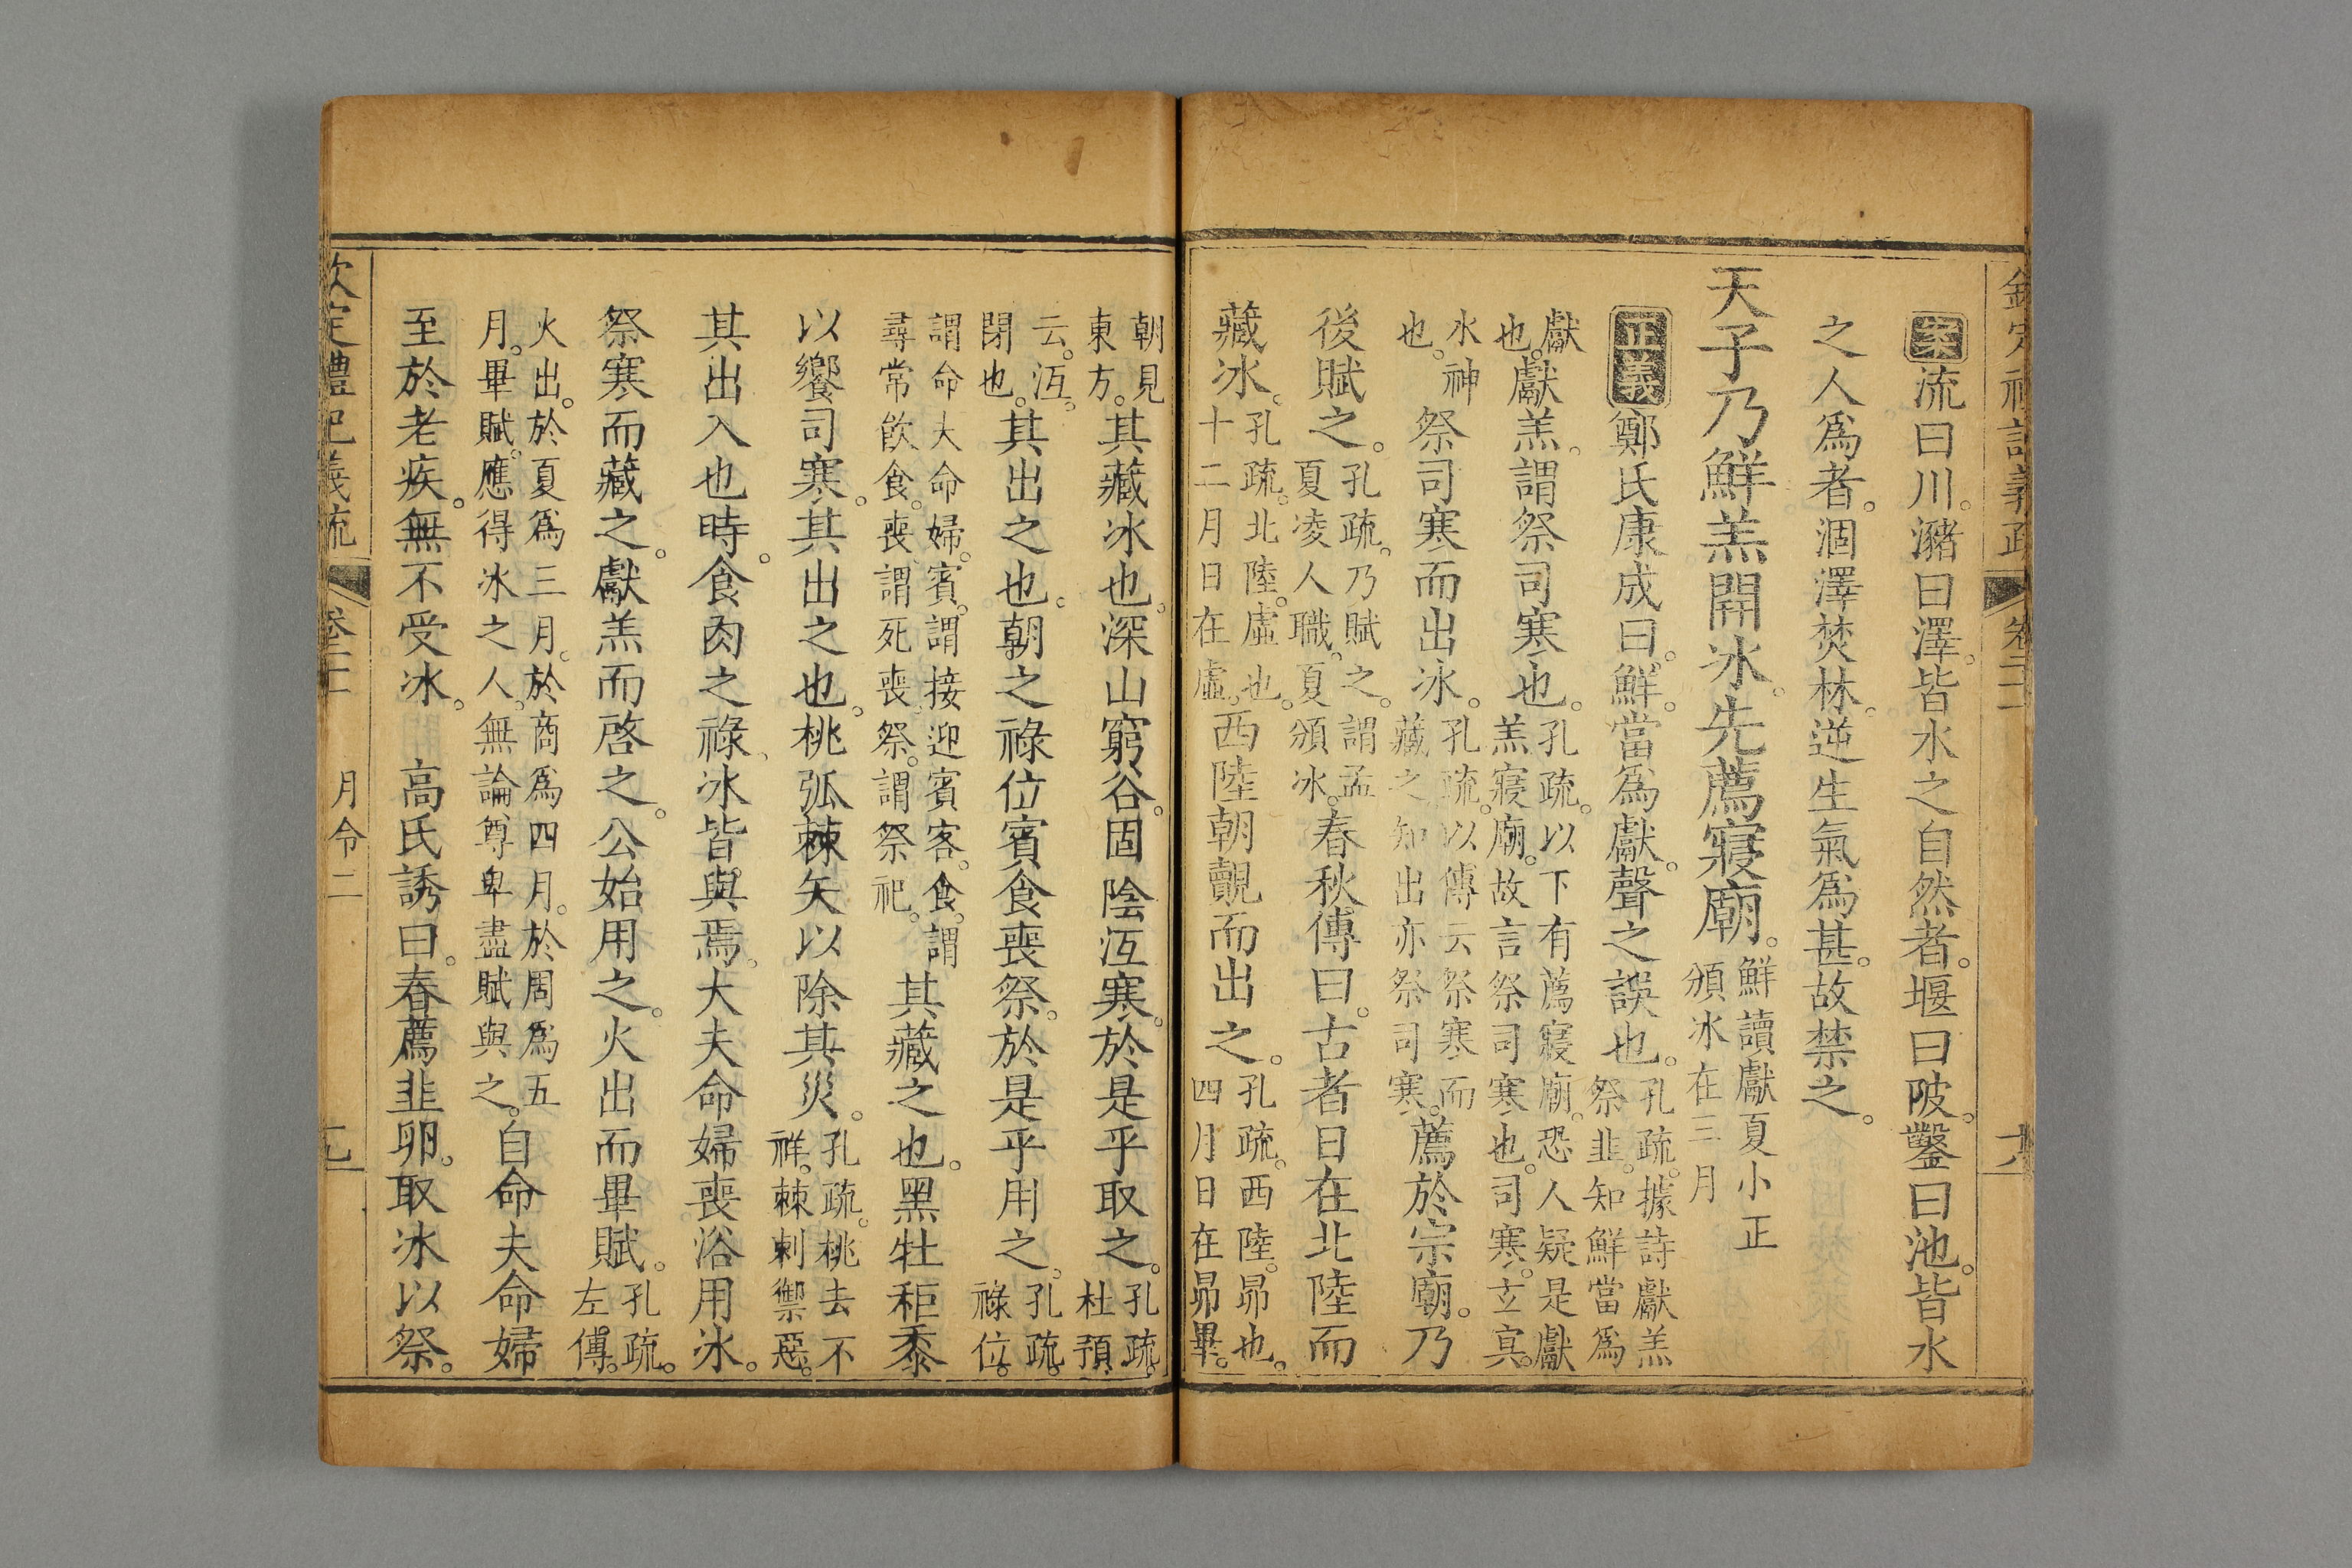 欽定禮記義疏 卷二十二 十八
案流曰川。瀦曰澤。皆水之自然者。堰曰陂。鑿曰池。皆水
之人爲者。涸澤焚林。逆生氣爲甚。故禁之。
天子乃鮮羔開冰。先薦寢廟。鮮讀獻夏小正頒冰在三月
正義鄭氏康成曰。鮮。當爲獻。聲之誤也。孔疏。據詩獻羔祭韭。知鮮當爲
獻也。獻羔。謂祭司寒也。孔疏。以下有薦寢廟。恐人疑是獻羔寢廟。故言祭司寒也。司寒。玄冥。
水神也。祭司寒而出冰。孔疏。以傳云祭寒而藏之知出亦祭司寒。薦於宗廟。乃
後賦之。孔疏。乃賦之。謂孟夏凌人職。夏頒冰。春秋傳曰。古者日在北陸而
藏冰。孔疏。北陸。虛也。十二月日在虛。西陸朝覿而出之。孔疏。西陸。昴也。四月日在昴畢。
朝見東方。其藏冰也。深山窮谷。固陰沍寒。於是乎取之。孔疏。杜預
云。沍。閉也。其出之也。朝之祿位賓食喪祭。於是乎用之。孔疏。祿位。
謂命大命婦。賓。謂接迎賓客。食。謂尋常飲食。喪、謂死喪。祭。謂祭祀。其藏之也。黑牡秬黍
以饗司寒。其出之也。桃弧棘矢以除其災。孔疏。桃去不祥。棘刺禦惡。
其出入也時。食肉之祿、冰皆與焉。大夫命婦喪浴用冰。
祭寒而藏之。獻羔而啓之。公始用之。火出而畢賦。孔疏。左傳。
火出。於夏爲三月。於商爲四月。於周爲五月。畢賦。應得冰之人。無論尊卑盡賦與之。自命夫命婦
至於老疾。無不受冰。 高氏誘曰。春薦韭卵。取冰以祭。
欽定禮記義疏 卷二十二 月令二